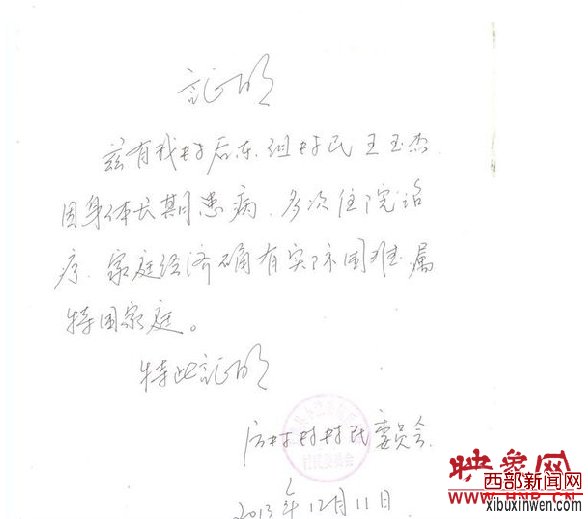 证明
兹有我村后东组村民王玉杰
因身体长期患病、多次住院治
疗、家庭经济确有实际困难属
特困家庭。
特此证明
村村民委员会
村民委员会
2013年12月11日
映象网
WWW.HNR.CN
西部新闻网
xibuxinwen.com